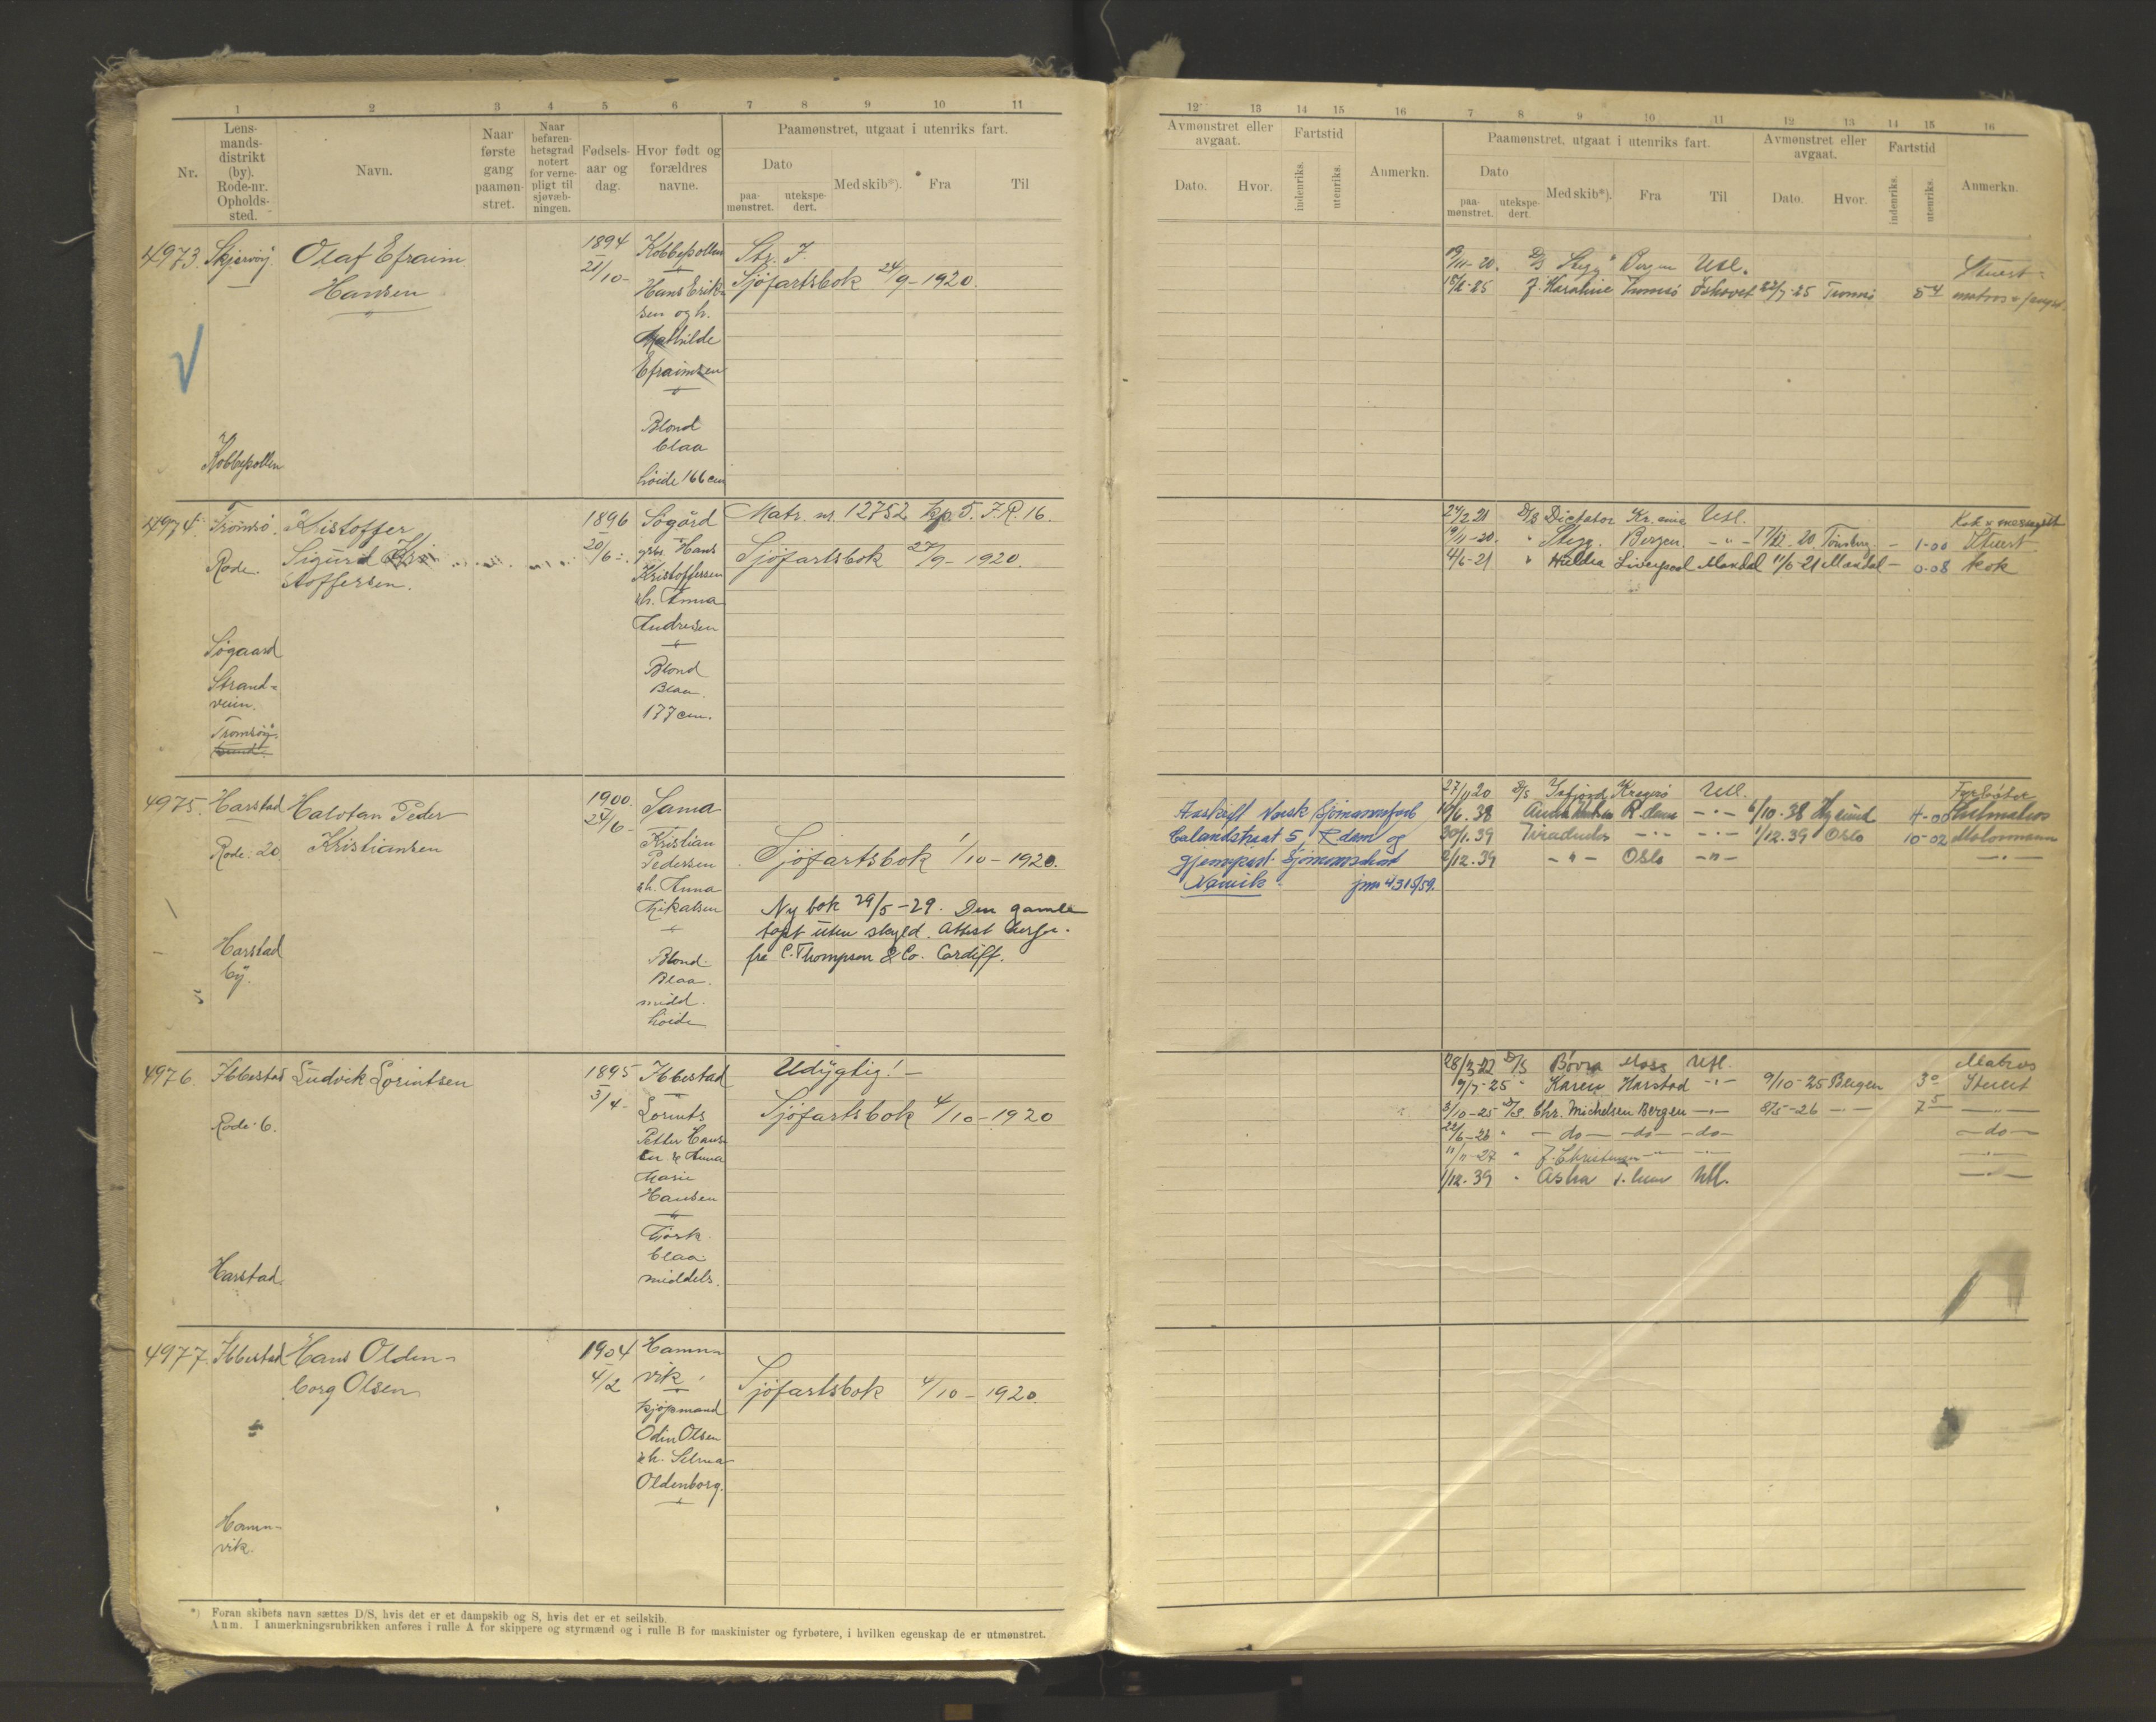 1 2 3 4 5 6 7 8 9 10 11
Nr.
Lens-
mands-
distrikt
(by).
Rode-nr.
Opholds-
sted.
Navn.
Naar
første
gang
paamøn-
stret.
Naar
befaren-
hetsgrad
notert
for verne-
pligt til
sjøvæb-
ningen.
Fødsels-
aar og
dag.
Hvor født og
forældres
navne.
Paamønstret, utgaat i utenriks fart.
Dato
paa-
mønstret.
utekspe-
dert.
Med skib*).
Fra
Til
4973. Skjervøy.
Olaf Efraim
Hansen
1894
21/10-
Kobbepollen
Hans Erik-
sen og h.
Mathilde
Efraimsen
Blond
blaa
höide 166 cm
Kobbepollen
Str. J.
Sjöfartsbok 24/9-1920.
4974. Tromsö.
Rode.
Kristoffer
Sigurd Kri
stoffersen.
1896
20/6-
Søgård
gbr. Hans
Kristoffersen
&h. Anna
Andresen
Blond
Blaa.
177 cm.
Søgaard
Strand-
veien.
Tromsöy-
sund.
Matr. nr. 12752 kp. 5. J.R. 16.
Sjöfartsbok 27/9-1920.
4975. Harstad
Rode: 20
Halvdan Peder
Kristiansen
1900.
24/6-
Sama
Kristian
Pedersen
&h. Anna
Mikalsen
Blond.
Blaa.
midd.
höide
Harstad
by.
Sjöfartsbok 1/10-1920.
Ny bok 29/5-29. Den gamle
tapt uten skyld. Attest
fra C. Thompson & Co. Cardiff.
4976. Ibbestad
Rode. 6.
Ludvik Lorintsen
1895
3/4-
Ibbestad
Lorents
Petter Han-
sen & Anna
Marie
Hansen
blaa
middels.
Harstad.
Udygtig! -
Sjöfartsbok 4/10-1920
4977. Ibbestad
Hans Olden-
borg Olsen
1904
4/2
Hamn-
vik
kjöpmand
Odin Olsen
&h. Selma
Oldenborg.
Hamn-
vik.
Sjöfartsbok 4/10-1920.
*) Foran skibets navn sættes D/S, hvis det er et dampskib og S, hvis det er et seilskib.
Anm. I anmerkningsrubrikken anføres i rulle A for skippere og styrmænd og i rulle B for maskinister og fyrbøtere, i hvilken egenskap de er utmønstret.
12 13 14 15 16 7 8 9 10 11 12 13 14 15 16
Avmønstret eller
avgaat.
Dato.
Hvor.
Fartstid
indenriks.
utenriks.
Anmerkn.
Paamønstret, utgaat i utenriks fart.
Dato
paa-
mønstret.
utekspe-
dert.
Med skib*).
Fra
Til
Avmønstret eller
avgaat.
Dato.
Hvor.
Fartstid
indenriks.
utenriks.
Anmerkn.
19/11-20. D/S Stegg Bergen Utl. Stuert
18/2-25 Karoline Tromsö Ishavet 22/7-25 Tromsö 5 4 matros
24/2 21 D/S Dictator Kr.ania Utl. Kok
19/11-20. " Stegg. Bergen. -"- 17/12-20 Tönsberg. - 1-00 Stuert
4/6-21 " Hildra Liverpool Mandal 11/6-21 Mandal - 0-08 kok
27/11 20 D/S Isfjord Kragerö Utl. Fyrböter
Avskrift Norsk Sjömannsforb
Calandstraat 5, R.dam og
Sjömannskont
Narvik. jnr 4315/59.
/6.38 R.dam -"- 6/10.38 4-00
30/1.39 Tiradentes -"- -"- 1/12.39 Oslo 10-02 Motormann
2/12.39 -"- Oslo -"- -"-
28/3-22 D/S Bövra Moss Utl. Matros
9/7-25 " Karen Harstad -"- 9/10-25 Bergen 3 0 Stuert
3/10-25 D/S. Chr. Michelsen Bergen -"- 8/5-26 -"- 7 5 -"-
22/6-26 " -do- -do- -do- -do-
11/11-27 " -"- -"- -"-
1/12.39 " Utl. -"-